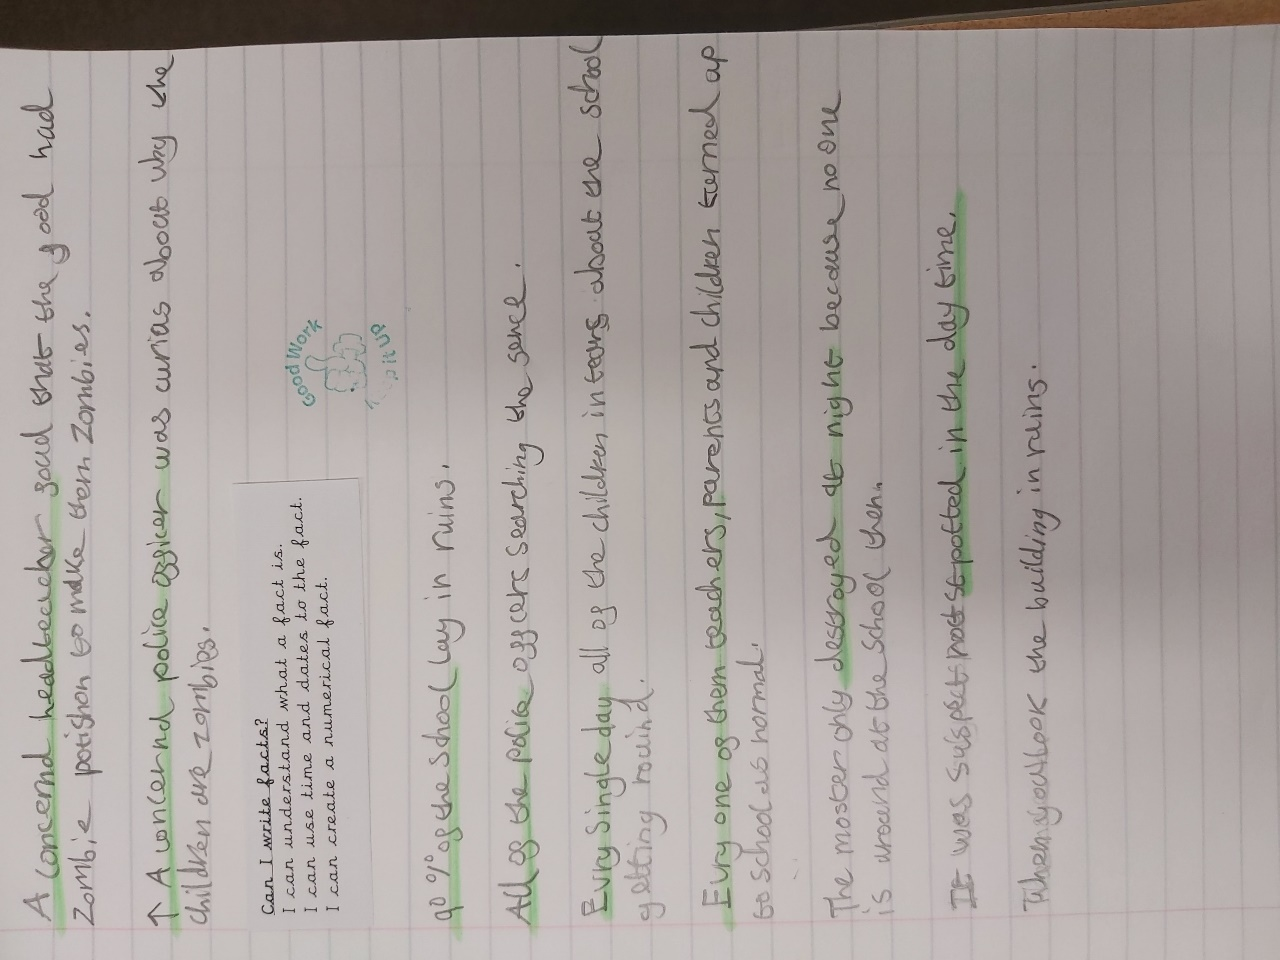 A concernd headteacher said that the food had
Zombie potishon to make them Zombies.
↑ A concernd police officer was curias about why the
children are zombies.
Can I write facts?
I can understand what a fact is.
I can use time and dates to the fact.
I can create a numerical fact.
Good Work
it up
90 % of the school lay in ruins.
All of the police offcers searching the sence.
Evry single day all of the children in tears about the school
getting rouind.
Evry one of them teachers, parents and children turned up
to school as normal.
The moster only destroyed at night because no one
is around at the school then.
It was suspects spotted in the day time.
When you look the building in ruins.